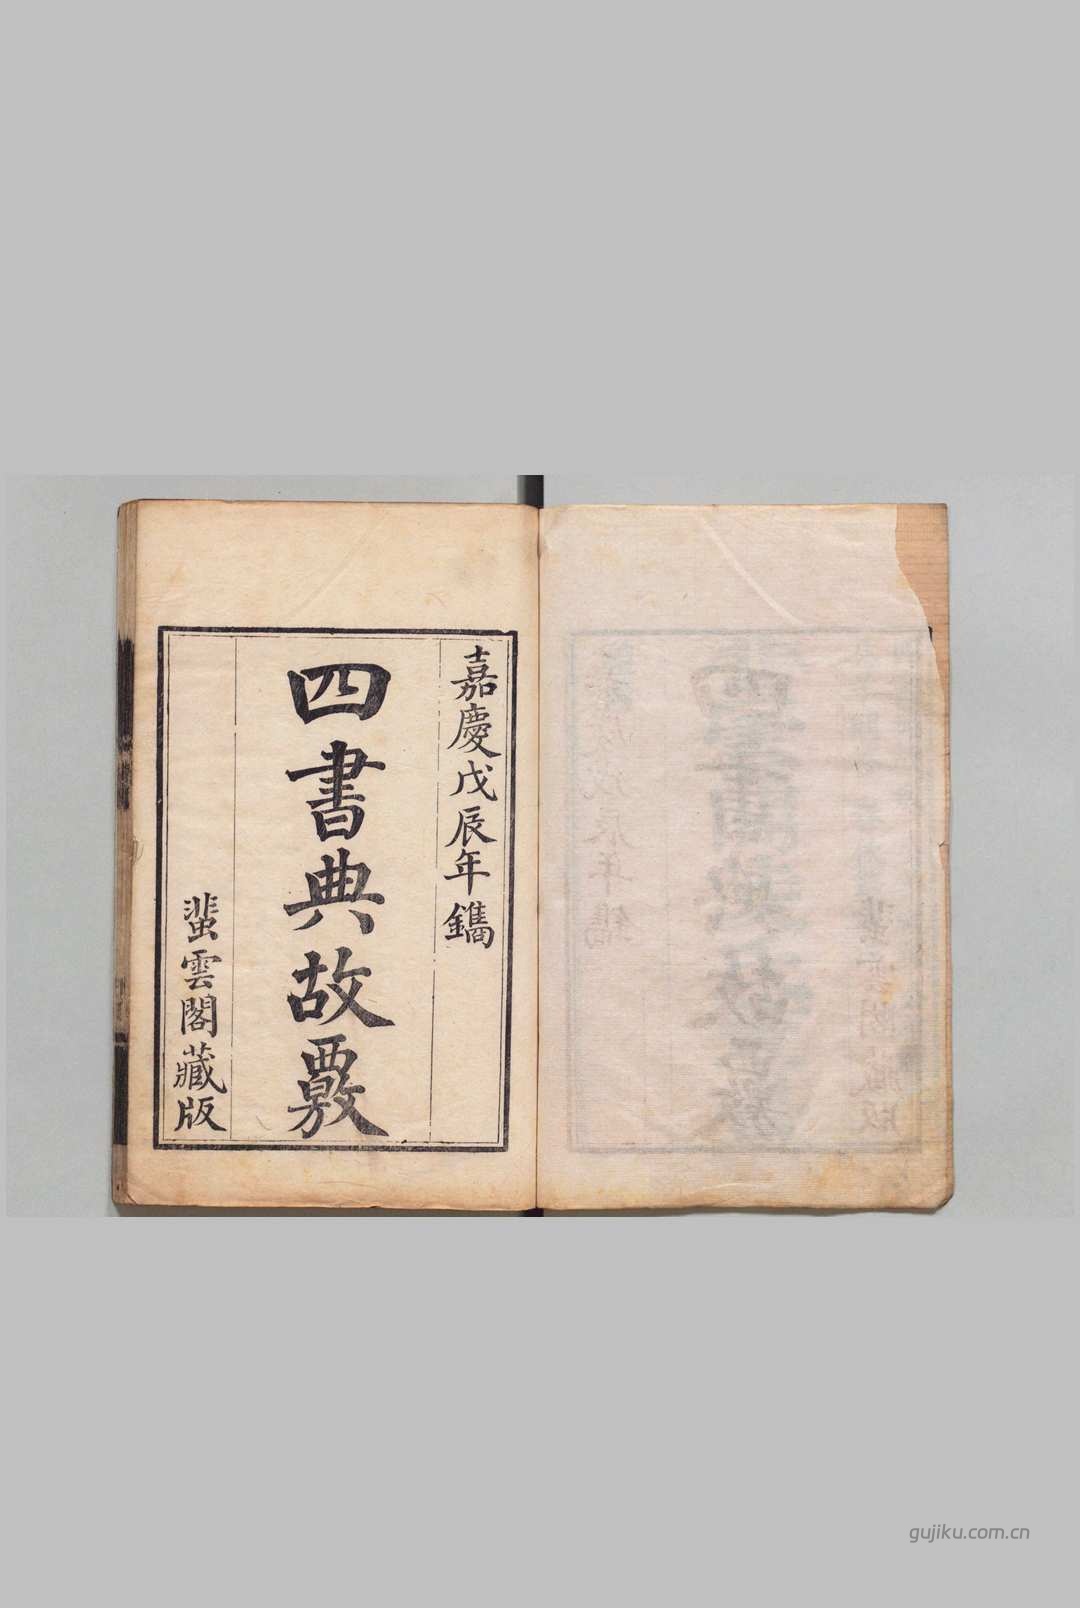 嘉慶戊辰年鐫
四書典故覈
蜚雲閣藏版
gujiku.com.cn